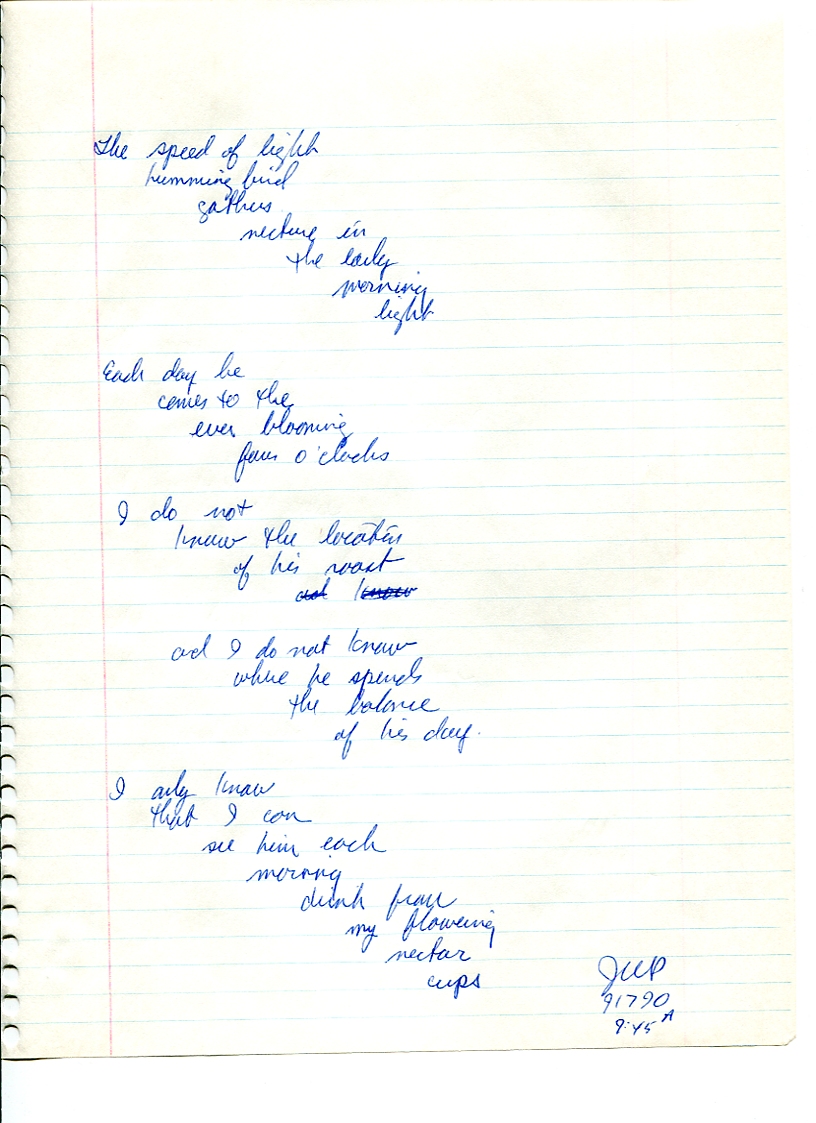 The speed of light
humming bird
gathers
necture in
the early
morning
light
Each day he
comes to the
ever blooming
four o'clocks
I do not
know the location
of his roost
and know
and I do not know
where he spends
the balance
of his day.
I only know
that I can
see him each
morning
drink from
my flowering
nectar
cups
JWP
91790
9:45 A